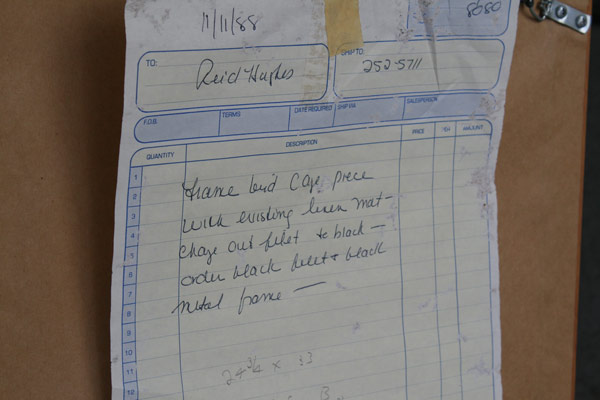 11/11/88
8680
TO:
Reid Hughes
SHIP TO:
252-5711
F.O.B.
TERMS
DATE REQUIRED
SHIP VIA
SALESPERSON
QUANTITY
DESCRIPTION
PRICE
PER
AMOUNT
1
2
3
4
5
6
7
8
9
10
11
12
Frame bird Cape piece
with existing linen mat -
change out fillet to black -
order black fillet + black
metal frame -
24 3/4 x 33